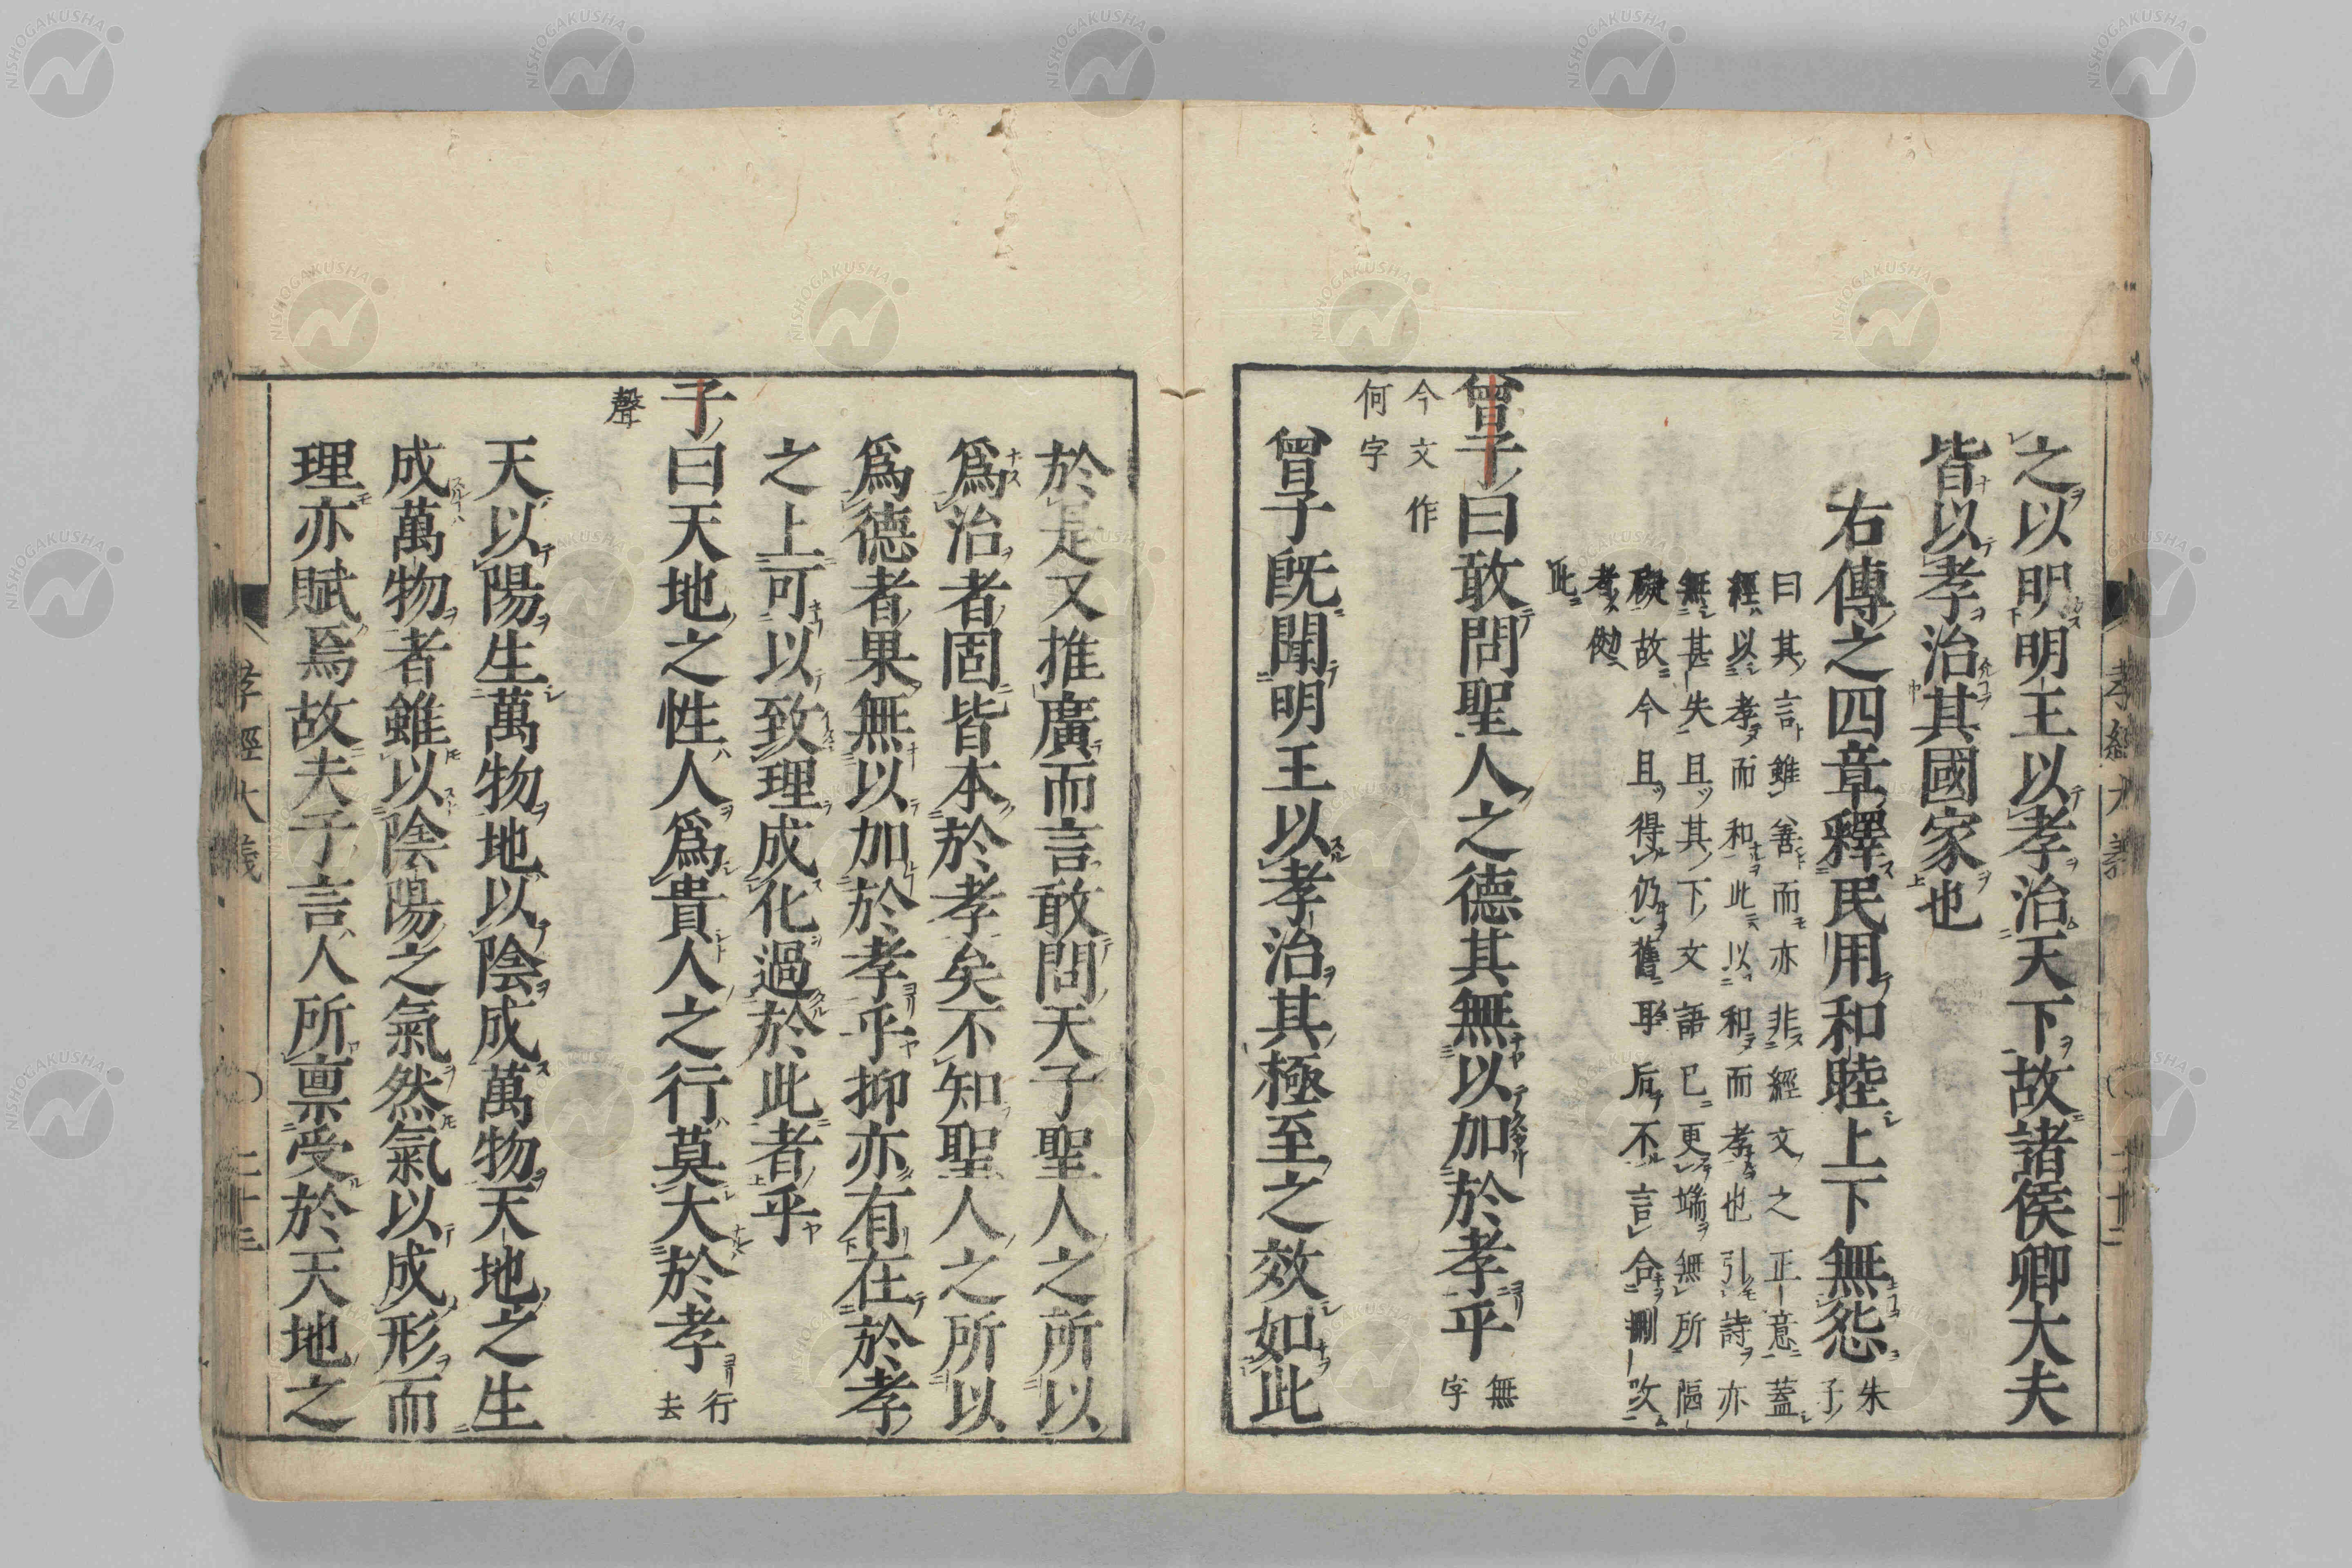 之以明明王以孝治天下故諸侯卿大夫
皆以孝治其國家也
右傳之四章釋民用和睦上下無怨
朱
子
曰其言雖善而亦非經文之正意蓋
經以孝而和此以和而孝也引詩亦
無甚失且其下文語已更端無所
礙故今且得仍舊耳后不言合刪改
者倣
此
曾子曰敢問聖人之德其無以加於孝乎
無
字
今文作
何字
曾子旣聞明王以孝治其極至之效如此
於是又推廣而言敢問天子聖人之所以
爲治者固皆本於孝矣不知聖人之所以
爲德者果無以加於孝乎抑亦有在於孝
之上可以致理成化過於此者乎
子曰天地之性人爲貴人之行莫大於孝
行
去
聲
天以陽生萬物地以陰成萬物天地之生
成萬物者雖以陰陽之氣然氣以成形而
理亦賦焉故夫子言人所稟受於天地之
孝經大義
二十三
NISHOGAKUSHA